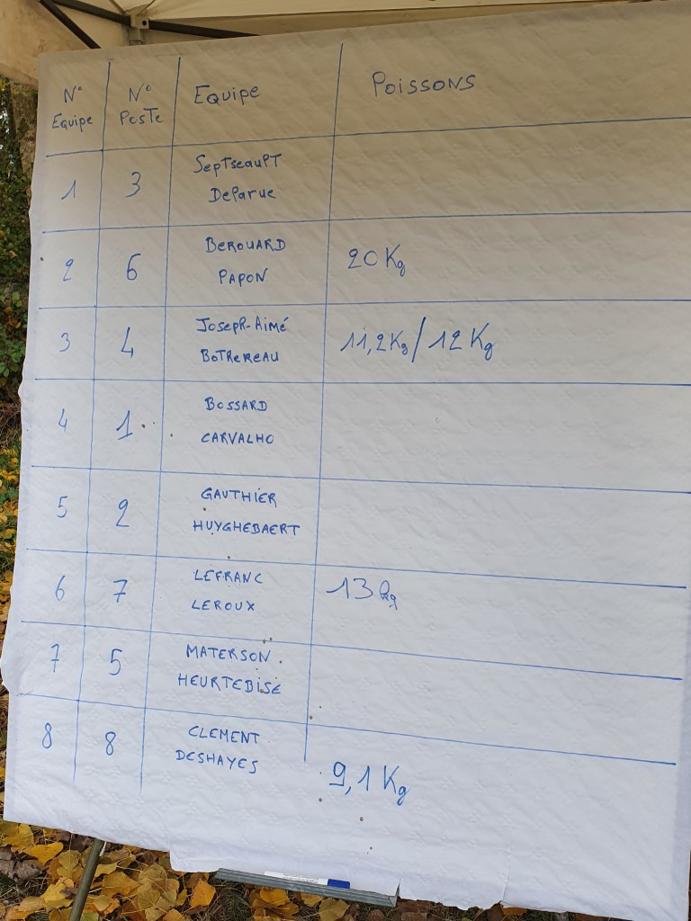 N° Equipe N° Poste Equipe Poissons
1 3 Septseault Deparue
2 6 BEROUARD PAPON 20 Kg
3 4 Joseph-Aimé BOTHEREAU 11,2Kg/12 Kg
4 1 BOSSARD CARVALHO
5 2 GAUTHIER HUYGHEBAERT
6 7 LEFRANC LEROUX 13 kg
7 5 MATERSON HEURTEBISE
8 8 CLEMENT DESHAYES 9,1 Kg